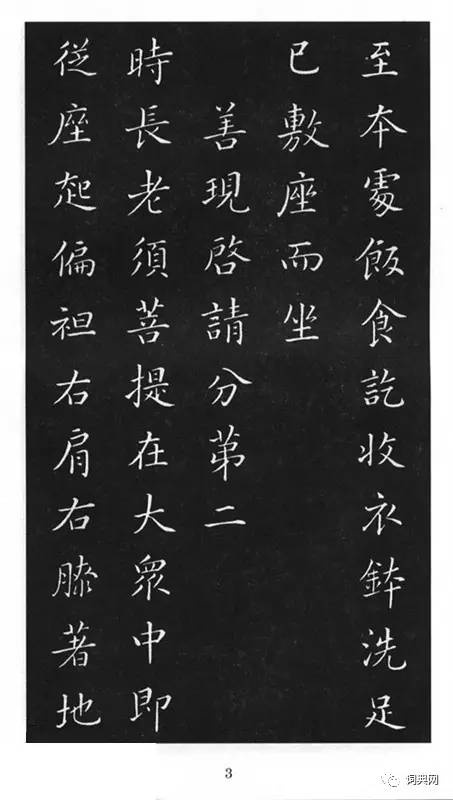 至本處飯食訖收衣鉢洗足
已敷座而坐
善現啓請分第二
時長老須菩提在大眾中即
從座起偏袒右肩右膝著地
3
词典网